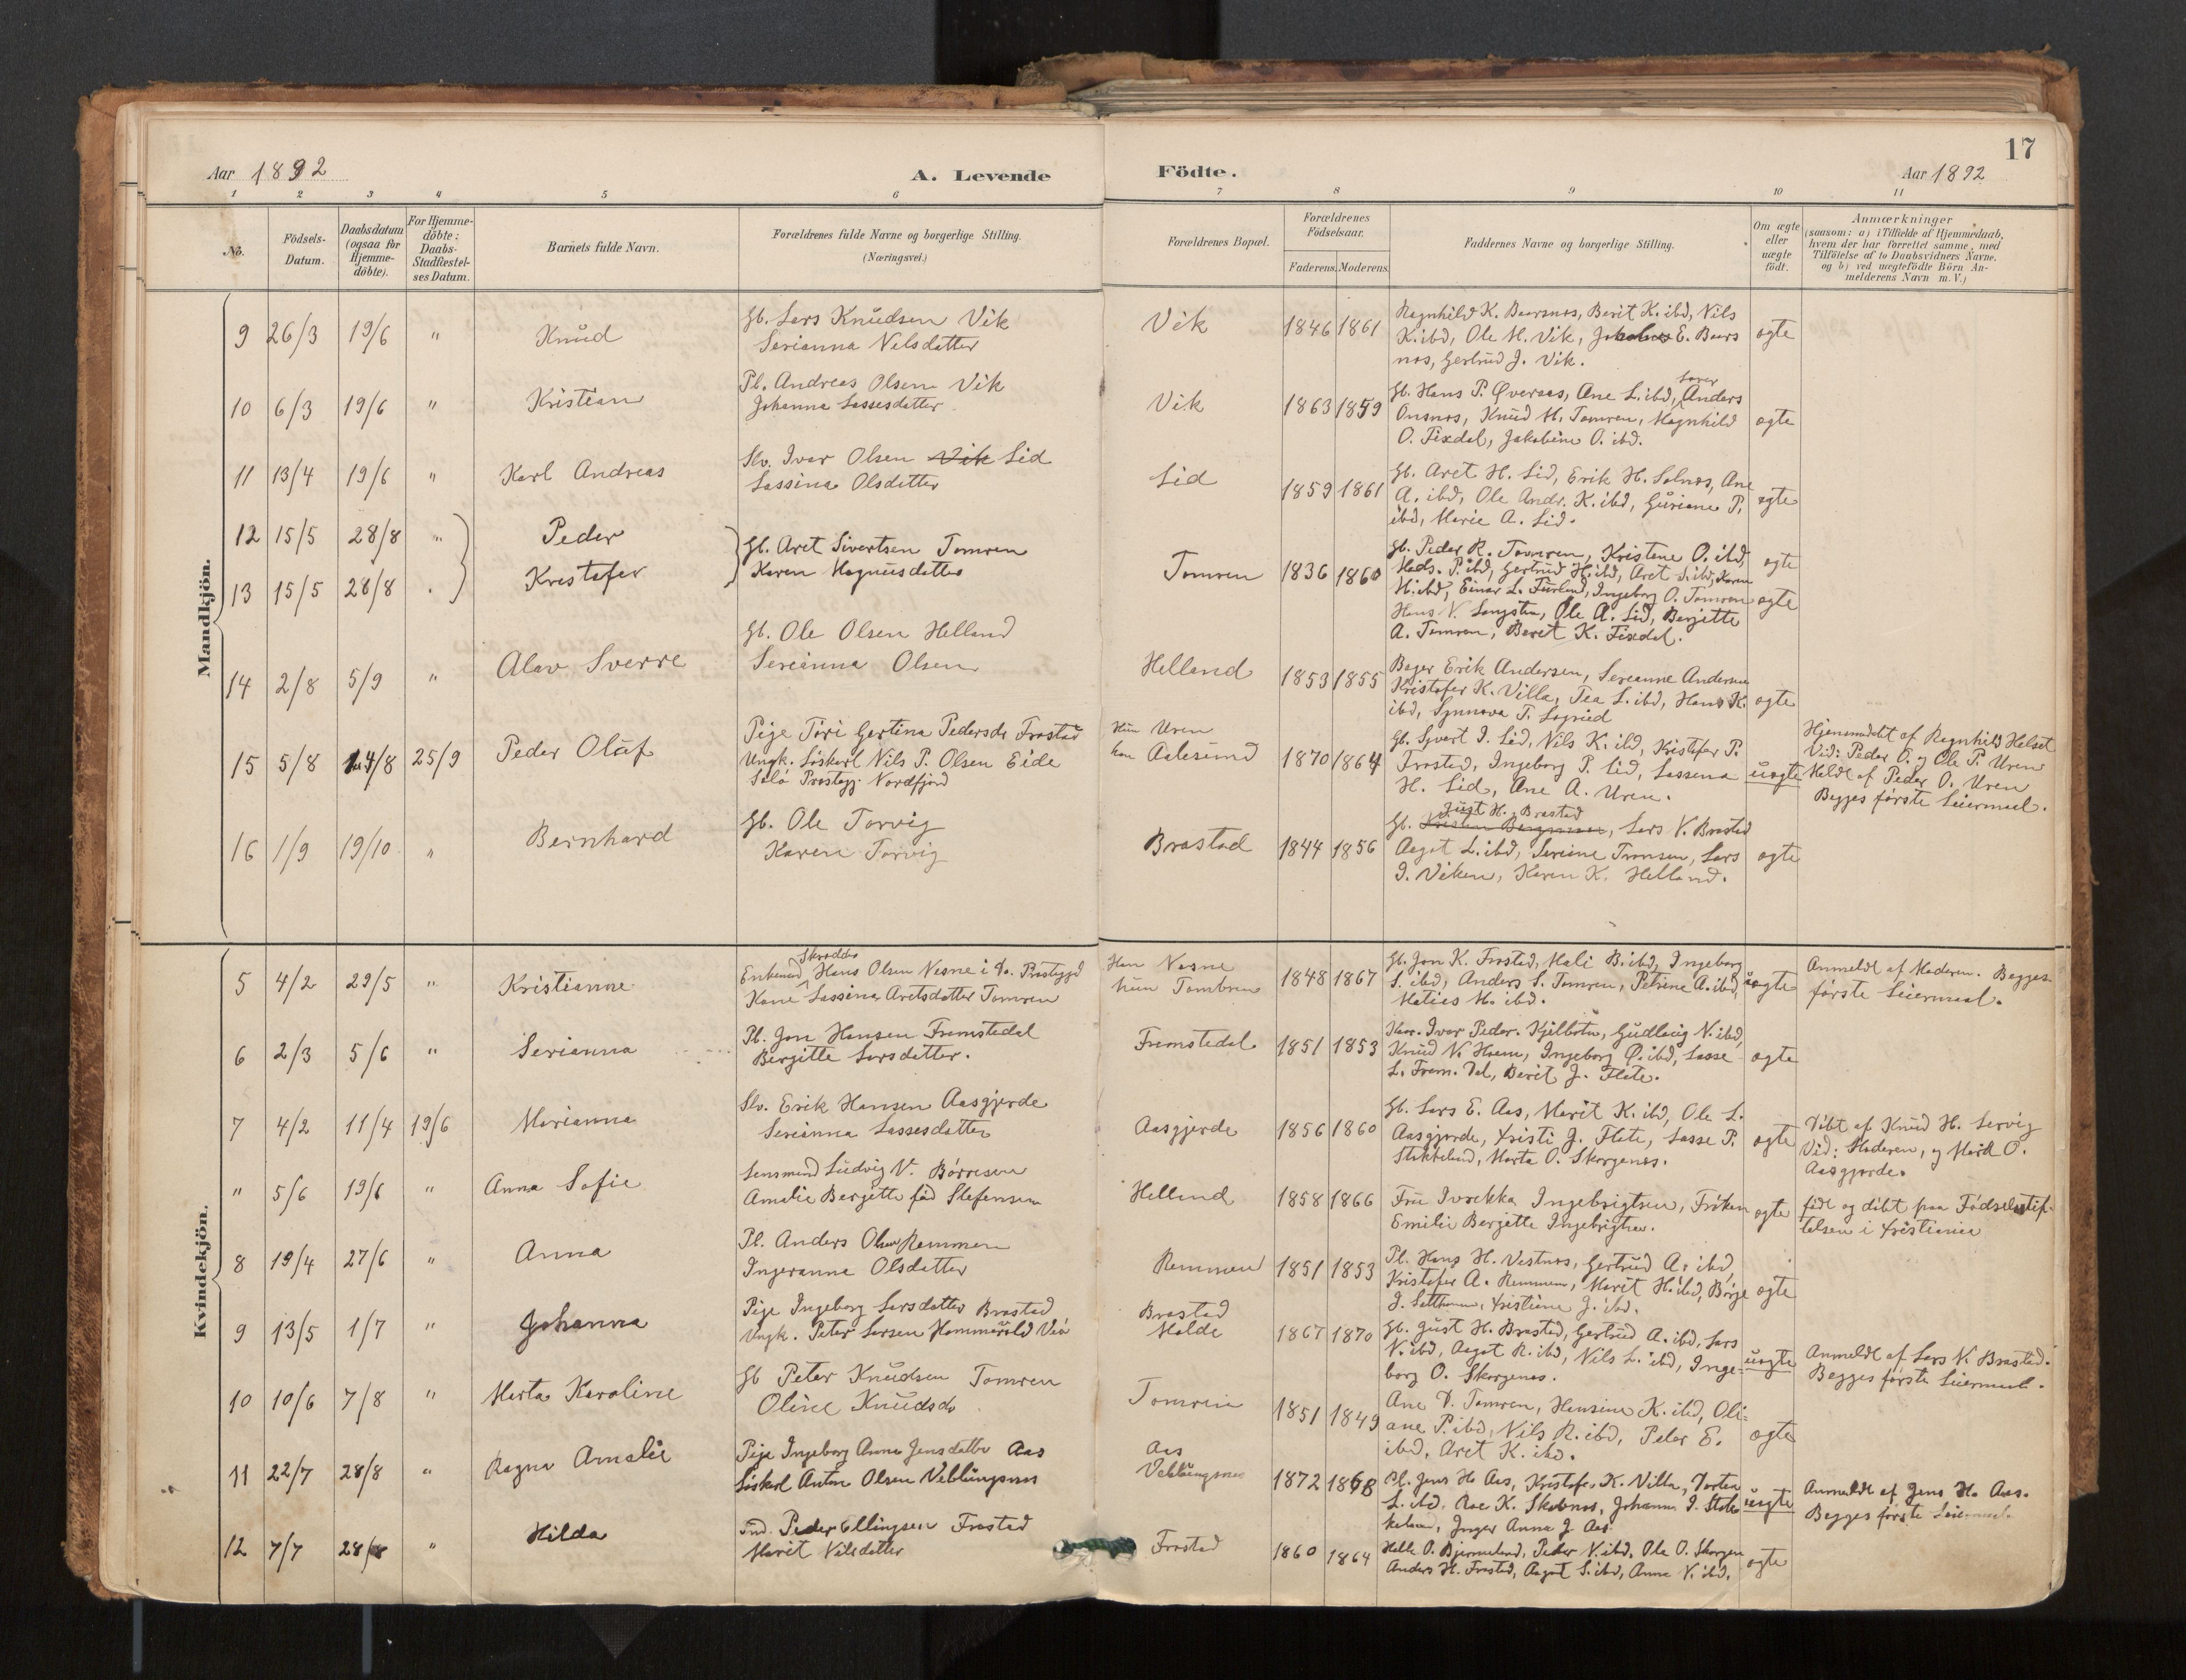 17
Aar 1892
A. Levende
Födte.
Aar 1892
1 2 3 4 5 6 7 8 9 10 11
No.
Födsels-
Datum.
Daabsdatum
(ogsaa for
Hjemme-
döbte).
For Hjemme-
döbte:
Daabs-
Stadfæstel-
ses Datum.
Barnets fulde Navn.
Forældrenes fulde Navne og borgerlige Stilling.
(Næringsvei.)
Forældrenes Bopæl.
Forældrenes
Födselsaar.
Faderens. Moderens.
Faddernes Navne og borgerlige Stilling.
Om ægte
eller
uægte
födt.
Anmærkninger
(saasom: a) i Tilfælde af Hjemmedaab,
hvem der har forrettet samme, med
Tilföielse af to Daabsvidners Navne,
og b) ved uægtefödte Börn An-
melderens Navn m.V.)
Mandkjön.
9 26/3 19/6 " Knud
Gb. Lars Knudsen Vik
Serianna Nilsdatter
Vik 1846 1861
Ragnhild K. Baarsnes, Berit K. ibd, Nils
K. ibd, Ole M. Vik, E. Baars
nes, Gertrud J. Vik.
ægte
10 6/3 19/6 " Kristian
Pl. Andreas Olsen Vik
Johanna Lassesdatter
Vik 1863 1859
Gb. Hans P. Øveraas, Ane L. ibd, Anders
Onsnes, Knud M. Tomren, Magnhild
O. Fixdal, Jakobine O. ibd.
ægte
11 13/4 19/6 " Karl Andreas
Slv. Ivar Olsen Vik Lid
Lassina Olsdatter
Lid 1859 1861
Gb. Aret H. Lid, Erik H. Solnes, Ane
A. ibd, Ole Andr. K. ibd, Guriane P.
ibd, Marie A. Lid.
ægte
12 15/5 28/8 " Peder
13 15/5 28/8 . Kristofer
Gb. Aret Sivertsen Tomren
Karen Magnusdatter
Tomren 1836 1860
Gb. Peder R. Tomren, Kristene O. ibd,
Mads. P. ibd, Gertrud H. ibd, Aret S. ibd, Karen
M. ibd, Einar L. Furland, Ingeborg O. Tomren
Hans V. , Ole A. Lid, Berjitte
A. Tomren, Berit K. Fixdal.
ægte
ægte
14 2/8 5/9 " Alav Sverre
Gb. Ole Olsen Helland
Serianna Olsen
Helland 1853 1855
Bager Erik Andersen, Serianne Andersen
Kristofer K. Villa, Tea L. ibd, Hans K.
ibd, Synnøva T.
ægte
15 5/8 14/8 25/9 Peder Oluf
Pige Turi Gertina Pedersdr Frostad
Ungk. Løskarl Nils P. Olsen Eide
Selø Prestegj. Nordfjord
Hun Uren
han Aalesund
1870 1864
Gb. Sjvert I. Lid, Nils K. ibd, Kristofer P.
Frostad, Ingeborg P. Lid, Lassena
H. Lid, Ane A. Uren.
uægte
Hjemmedøbt af Ragnhild Helset
Vid: Peder O. og Ole P. Uren
Meldt af Peder O. Uren
Begges første Leiermaal.
16 1/9 19/10 " Bernhard
Gb. Ole Torvig
Karen Torvig
Brastad 1844 1856
Just H. Brastad
Gb. , Lars V. Brastad
Aagot L. ibd, Seriane Tronsen, Lars
I. Viken, Karen K. Helland.
ægte
Kvindekjön.
5 4/2 29/5 " Kristianne
Skrædder
Enkemand Hans Olsen Vesne i do. Prestegjd
Kone Lassina Aretsdatter Tomren
Han Nesne
hun Tombren
1848 1867
Gb. Jon K. Frostad, Mali B. ibd, Ingeborg
S. ibd, Anders S. Tomren, Petrine A. ibd,
Matias M. ibd.
uægte
Anmeldt af Moderen. Begges
første Leiermaal.
6 2/3 5/6 " Serianna
Pl. Jon Hansen Fremstedal
Bergitte Larsdatter.
Fremstedal 1851 1853
Ivar Peder. Kjelbotn, Gudlaug N. ibd,
Knud N. Haem, Ingeborg Ø. ibd, Lasse
L. Frem. Dal, Berit J. Flate.
ægte
7 4/2 11/4 19/6 Marianna
Slv. Erik Hansen Aasgjerde
Serianna Lassesdatter
Aasgjerde 1856 1860
Gb. Lars E. Aas, Marit K. ibd, Ole L.
Aasgjerde, Kristi J. Flate, Lasse P.
Stokkeland, Marta O. Skorgenes.
ægte
Døbt af Knud H. Lervig
Vid: Moderen, og Marit O.
Aasgjerde.
" 5/6 19/6 " Anna Sofie
Lensmand Ludvig V. Børresen
Amalie Bergitte fød Stefensen
Helland 1858 1866
Fru Ingebrigtsen, Frøken
Emilie Bergitte Ingebrigtsen.
ægte
født og døbt paa Fødselsstif-
telsen i Kristiania
8 19/4 27/6 " Anna
Pl. Anders Olsen Remmen
Ingeranna Olsdatter
Remmen 1851 1853
Pl. Hans H. Vestnes, Gertrud A. ibd
Kristofer A. Remmem, Marit H. ibd, Børge
J. , Kristiane J. ibd.
ægte
9 13/5 1/7 " Johanna
Pige Ingeborg Larsdatter Brastad
Ungk. Peter Larsen
Brastad
Molde
1867 1870
Gb. Just H. Brastad, Gertrud A. ibd, Lars
V. ibd, Aagot R. ibd, Nils L. ibd, Inge-
borg O. Skorgenes.
uægte
Anmeldt af Lars V. Brastad.
Begges første Leiermaal.
10 10/6 7/8 " Marta Karoline
Gb Peter Knudsen Tomren
Oline Knudsdr
Tomren 1851 1849
Ane D. Tomren, Hansine K. ibd, Oli-
ane P. ibd, Nils R. ibd, Peter E.
ibd, Aret K. ibd.
ægte
11 22/7 28/8 " Ragna Amalie
Pige Ingeborg Anna Jensdatter Aas
Løskarl Anton Olsen Veblungsnes
Aas
Veblungsnes
1872 1868
Pl. Jens H. Aas, Kristofer K. Villa, Dortea
L. ibd, K. , Johanne I. Stok-
keland, Inger Anna J. Aas
uægte
Anmeldt af Jens H. Aas.
Begges første Leiermaal.
12 7/7 28/8 " Hilda
Ind. Peder Ellingsen Frostad
Marit Nilsdatter
Frostad 1860 1864
Helle O. Bjermeland, Peder N. ibd, Ole O. Skorgen
Anders H. Frostad, Aagot S. ibd, Anne V. ibd.
ægte